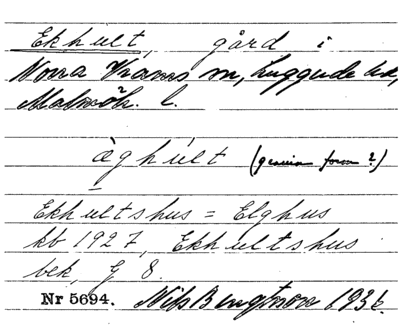 Ekhult, gård i
Norra Vrams sn, Luggude hd,
Malmöh. l.
èghúlt (genuin form?)
Ekhultshus = Elghus
kb 1927, Ekhultshus
bek, G 8.
Nr 5694. Nils Bengtsson 1936.